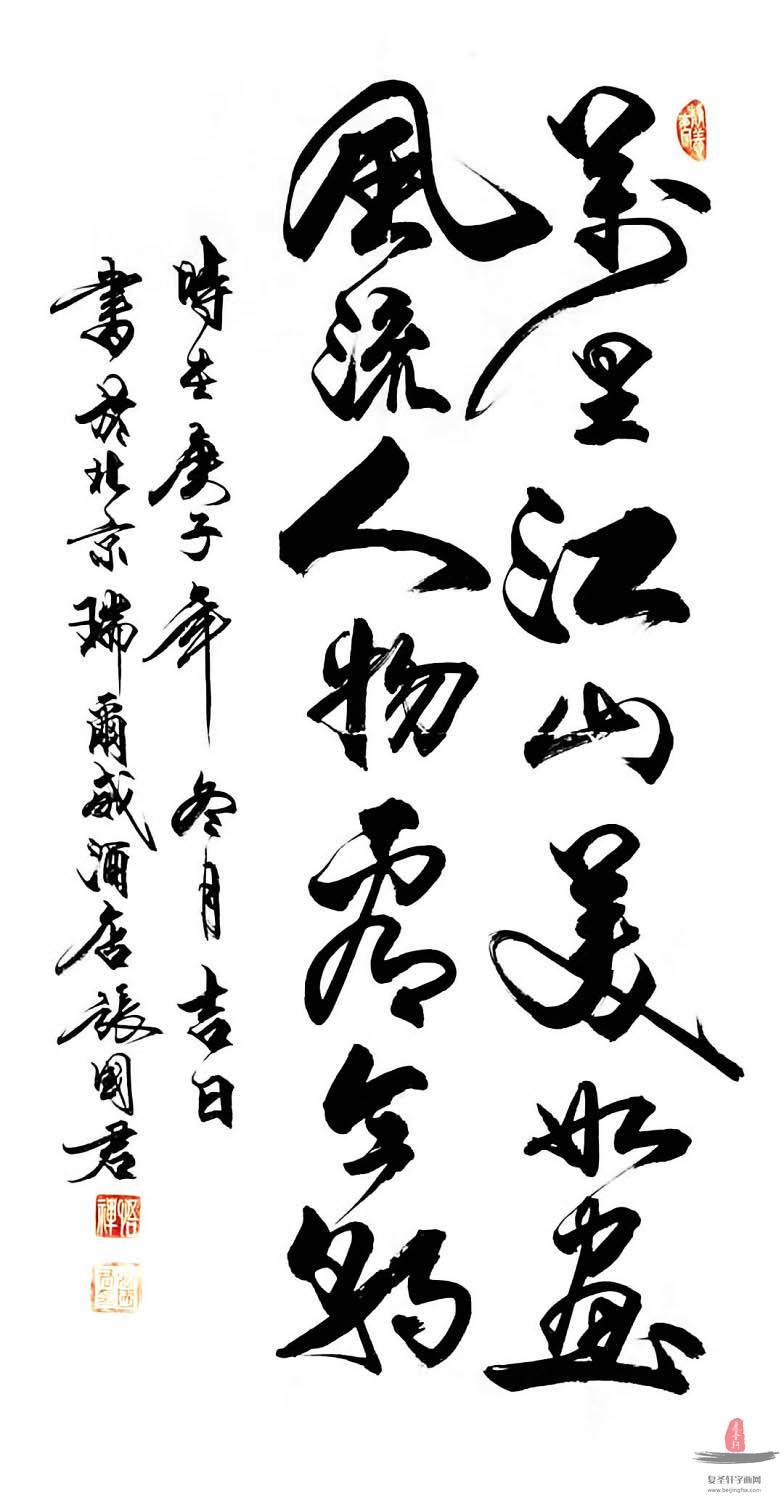 萬里江山美如畫
風流人物看今朝
時在庚子年冬月吉日
書於北京瑞爾威酒店張國君
悟禪
复圣轩字画网
www.beijingfsx.com